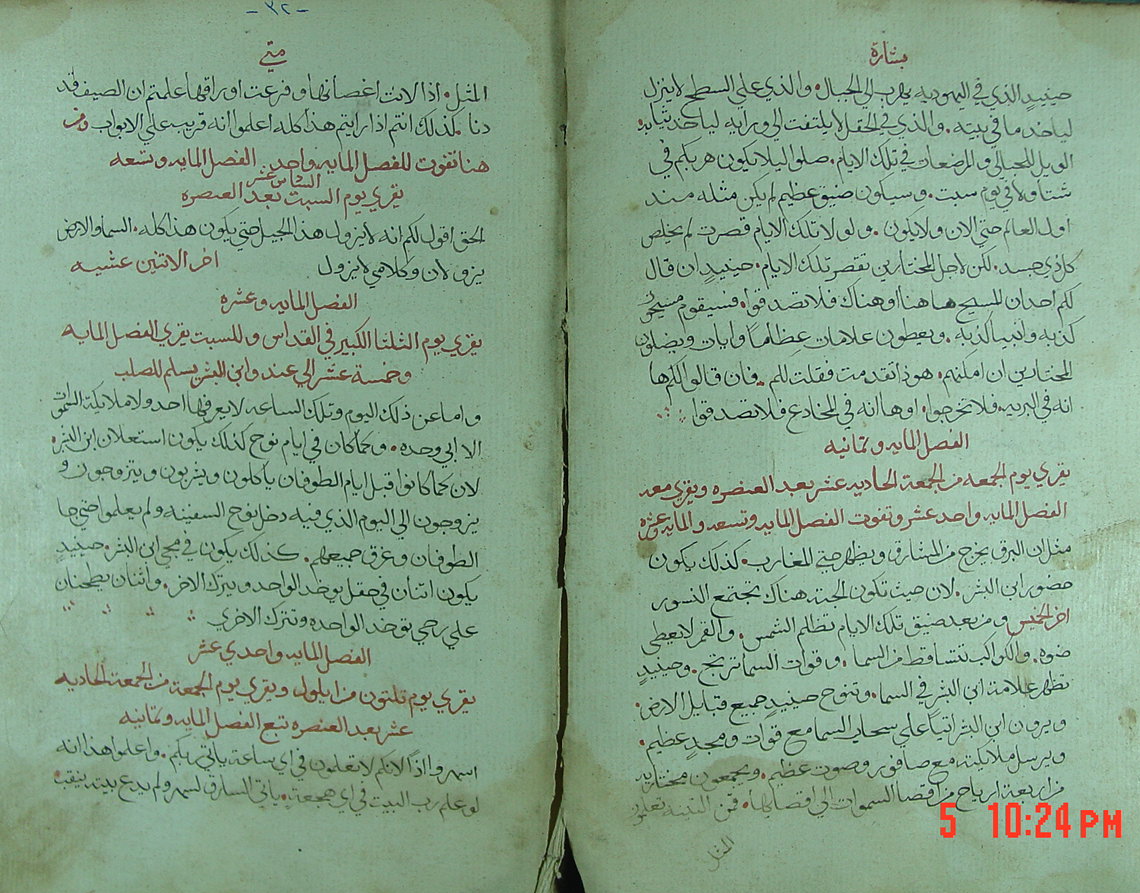 بشارة
حينيدٍ الذي في اليهوديه يهرب الي الجبال. والذي علي السطح لا ينزل
لياخد ما في بيته. والذي في الحقل لا يلتفت الي ورايه لياخد ثيابه.
الويل للحبالي والمرضعات في تلك الايام. صلوا ليلا يكون هربكم في
شتا ولا في يوم سبت. وسيكون ضيق عظيم لم يكن مثله مند
اول العالم حتي الان ولا يكون. ولولا تلك الايام قصرت لم يخلص
كل ذي جسد. لكن لاجل المختارين تقصر تلك الايام. حينيدٍ ان قال
لكم احد ان المسيح هاهنا او هناك فلا تصدقوا. فسيقوم مسيحوا
كذبه وانبيا كذبه. ويعطون علامات عظاماً وايات ويضلون
المختارين ان امكنهم. هوذا تقدمت فقلت لكم. فان قالوا لكم ها
انه في البريه فلا تخرجوا. او ها انه في المخادع فلا تصدقوا
الفصل المايه وتمانيه
يقري يوم الجمعه من الجمعة الحاديه عشر بعد العنصره ويقري معه
الفصل المايه واحد عشر وتفوت الفصل المايه وتسعه والمايه وعشره
مثل ان البرق يخرج من المشارق ويظهر حتي المغارب. كذلك يكون
حضور ابن البشر. لان حيث تكون الجثة هناك تجتمع النسور
اخر الخميس ومن بعد ضيق تلك الايام تظلم الشمس. والقمر لا يعطي
ضوه. والكواكب تتساقط من السما. وقوات السما ترتج. وحينيدٍ
تظهر علامت ابن البشر في السما. وتنوح حينيدٍ جميع قبايل الارض.
ويرون ابن البشر اتياً علي سحاب السما مع قوات ومجدٍ عظيم.
ويرسل ملايكته مع صافور وصوت عظيم. ويجمعون مختاريه
من اربعة ارياح من اقصا السموات الي اقصايها. فمن التينه تعلموا
المثل
-٣٢-
متي
المثل. اذا لانت اغصانها وفرعت اوراقها علمتم ان الصيف قد
دنا. كذلك انتم اذا رايتم هذا كله اعلموا انه قريب علي الابواب ومن
هنا تفوت للفصل المايه واحد. الفصل المايه وتسعه
يقري يوم السبت السادس عشر بعد العنصره
الحق اقول لكم انه لا يزول هذا الجيل حتي يكون هذا كله. السما والارض
يزولان وكلامي لا يزول اخر الاتنين عشيه
الفصل المايه وعشره
يقري يوم الثلثا الكبير في القداس وللسبت يقري الفصل المايه
وخمسة عشر الي عند وابن البشر يسلم للصلب
واما عن ذلك اليوم وتلك الساعه لا يعرفها احد ولا ملايكة السموات
الا ابي وحده. وكما كان في ايام نوح كذلك يكون استعلان ابن البشر.
لان كما كانوا قبل ايام الطوفان ياكلون ويشربون ويتزوجون و
يزوجون الي اليوم الذي فيه دخل نوح السفينه ولم يعلموا حتي جا
الطوفان وغرق جميعهم. كذلك يكون في مجي ابن البشر. حينيدٍ
يكون اتنان في حقل يوخد الواحد ويترك الاخر. واتنتان يطحنان
علي رحي يوخد الواحده وتترك الاخري
الفصل المايه واحدي عشر
يقري يوم تلتون من ايلول ويقري يوم الجمعة من الجمعة الحاديه
عشر بعد العنصره تبع الفصل المايه وتمانيه
اسهروا اذاً لانكم لا تعلمون في اي ساعة ياتي ربكم. واعلموا هذا انه
لو علم رب البيت في اي هجعة. ياتي السارق لسهر ولم يدع بيته ينقب.
5 10:24 PM